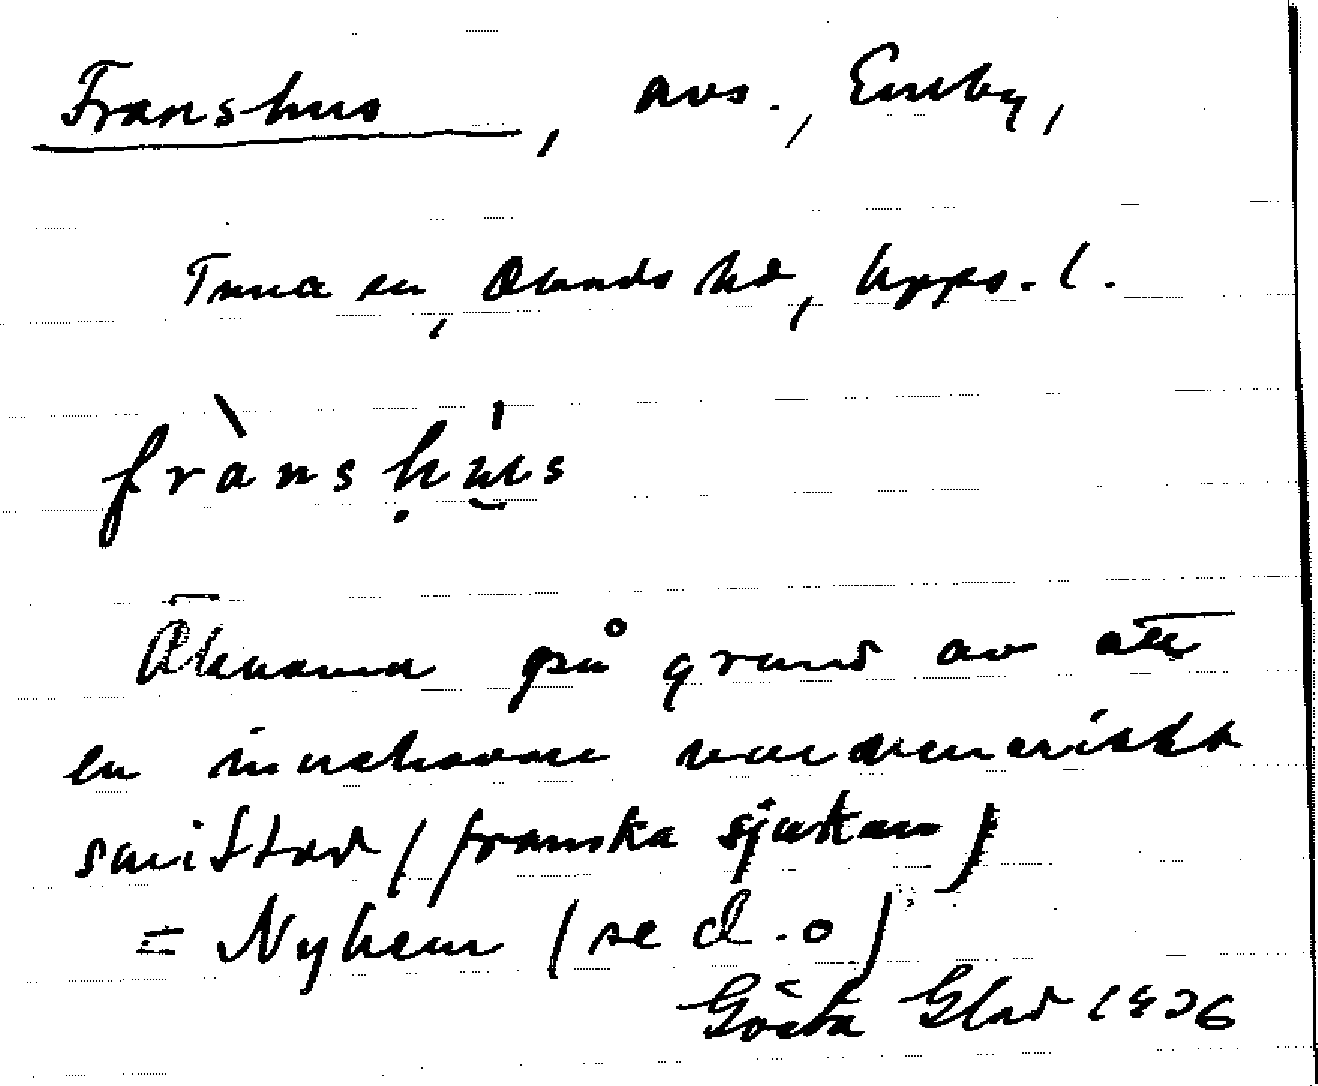 Franshus, avs., Emby,
Tuna sn, Olands hd, Upps. l.
frànshús
Öknamn på grund av att
en innehavare var veneriskt
smittad (franska sjukan)
= Nyhem (se d.o)
Gösta Glad 1936